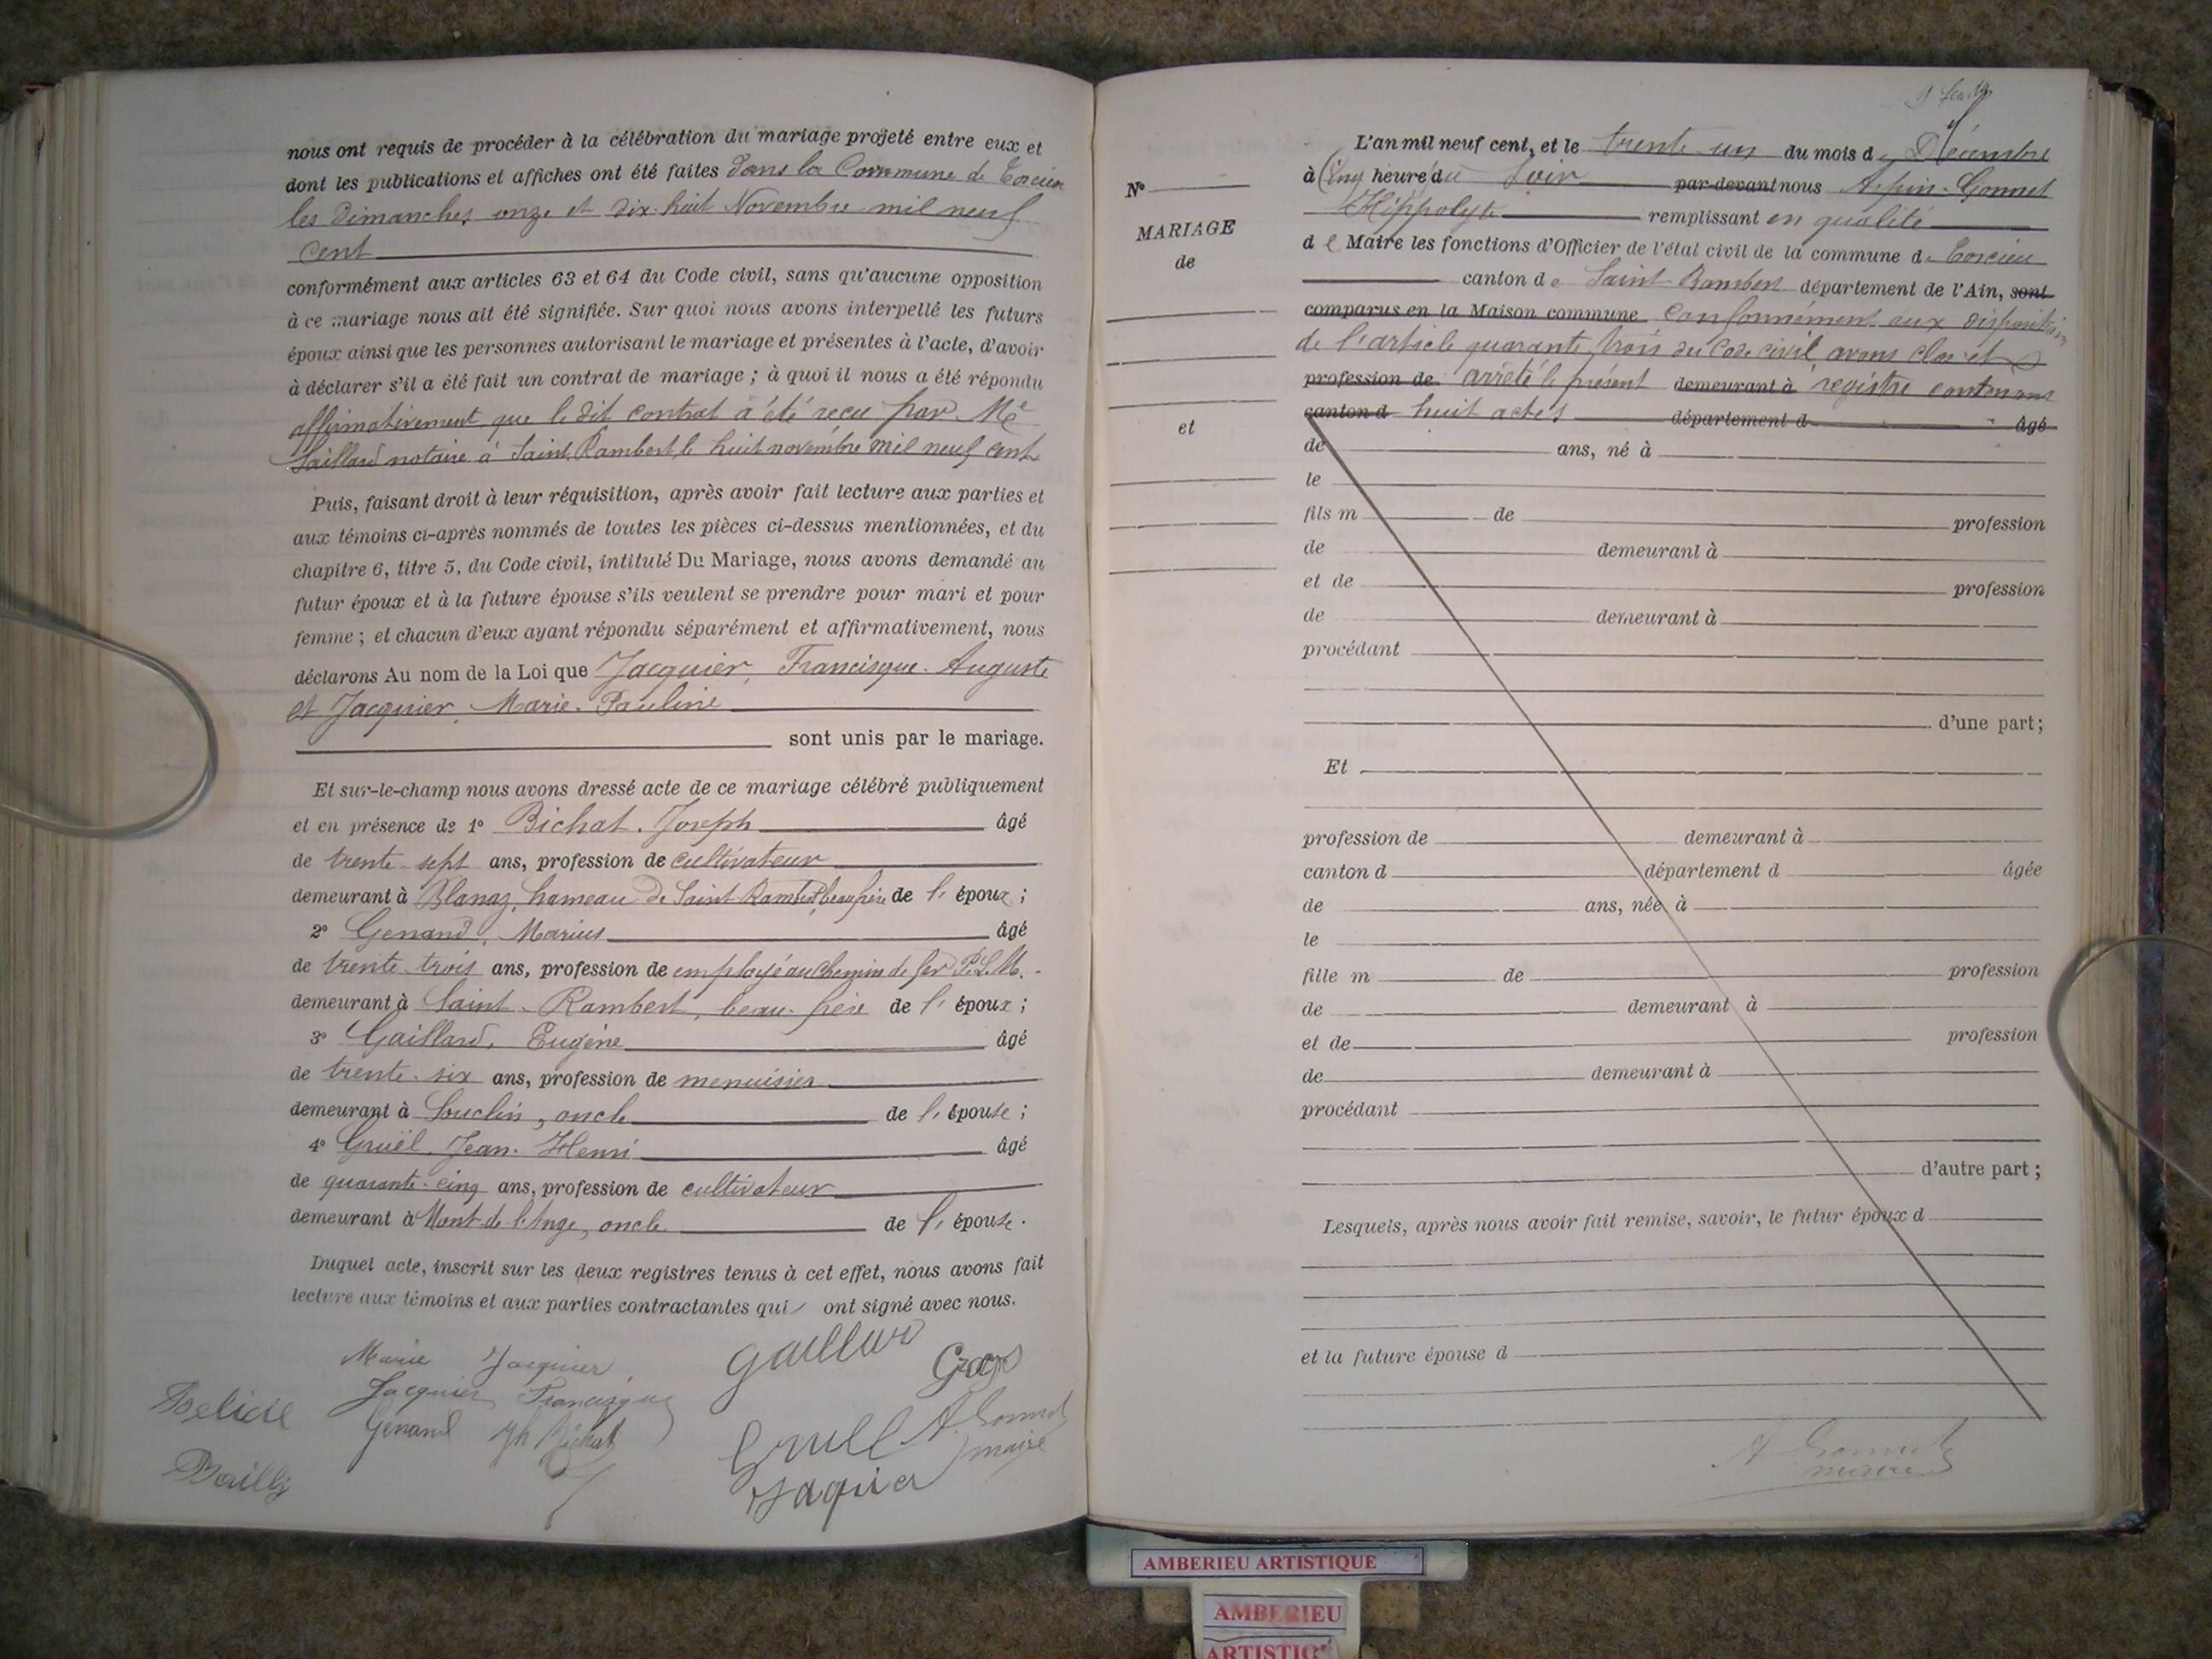 nous ont requis de procéder à la célébration du mariage projeté entre eux et
dont les publications et affiches ont été faites dans la Commune de Torcieu
les dimanches onze et dix-huit Novembre mil neuf
cent
conformément aux articles 63 et 64 du Code civil, sans qu'aucune opposition
à ce mariage nous ait été signifiée. Sur quoi nous avons interpellé les futurs
époux ainsi que les personnes autorisant le mariage et présentes à l'acte, d'avoir
à déclarer s'il a été fait un contrat de mariage ; à quoi il nous a été répondu
affirmativement que le dit contrat a été reçu par Me
notaire à Saint Rambert le huit novembre mil neuf cent
Puis, faisant droit à leur réquisition, après avoir fait lecture aux parties et
aux témoins ci-après nommés de toutes les pièces ci-dessus mentionnées, et du
chapitre 6, titre 5, du Code civil, intitulé Du Mariage, nous avons demandé au
futur époux et à la future épouse s'ils veulent se prendre pour mari et pour
femme ; et chacun d'eux ayant répondu séparément et affirmativement, nous
déclarons Au nom de la Loi que Jacquier, Francisque Auguste
et Jacquier, Marie-Pauline
sont unis par le mariage.
Et sur-le-champ nous avons dressé acte de ce mariage célébré publiquement
et en présence de 1° Bichat, Joseph âgé
de trente-sept ans, profession de cultivateur
demeurant à Blanaz, hameau de Saint-Rambert, beau-frère de l'époux ;
2° Genand, Marius âgé
de trente-trois ans, profession de employé au chemin de fer P.L.M.
demeurant à Saint-Rambert, beau-frère de l'époux ;
3° Gaillard, Eugène âgé
de trente-six ans, profession de menuisier
demeurant à Souclin, oncle de l'épouse ;
4° Gruël, Jean-Henri âgé
de quarante-cinq ans, profession de cultivateur
demeurant à Mont de l'Ange, oncle de l'épouse.
Duquel acte, inscrit sur les deux registres tenus à cet effet, nous avons fait
lecture aux témoins et aux parties contractantes qui ont signé avec nous.
Marie Jacquier
Jacquier Francisque
Genand Jh Bichat
gaillard
Gruell A. Gonnet
maire
Jaquier
N°
MARIAGE
de
et
L'an mil neuf cent, et le trente-un du mois de Décembre
à cinq heure du soir par-devant nous Arpin-Gonnet
Hippolyte remplissant en qualité
de Maire les fonctions d'Officier de l'état civil de la commune de Torcieu
canton de Saint Rambert département de l'Ain, sont
comparus en la Maison commune Conformément aux dispositions
de l'article quarante trois du Code civil, avons clos et
profession de arrêté le présent demeurant à registre contenant
canton d huit actes département d âgé
de ans, né à
le
fils m de profession
de demeurant à
et de profession
de demeurant à
procédant
d'une part ;
Et
profession de demeurant à
canton d département d âgée
de ans, née à
le
fille m de profession
de demeurant à
et de profession
de demeurant à
procédant
d'autre part ;
Lesquels, après nous avoir fait remise, savoir, le futur époux d
et la future épouse d
A. Gonnet
maire
AMBERIEU ARTISTIQUE
AMBERIEU
ARTISTIQ